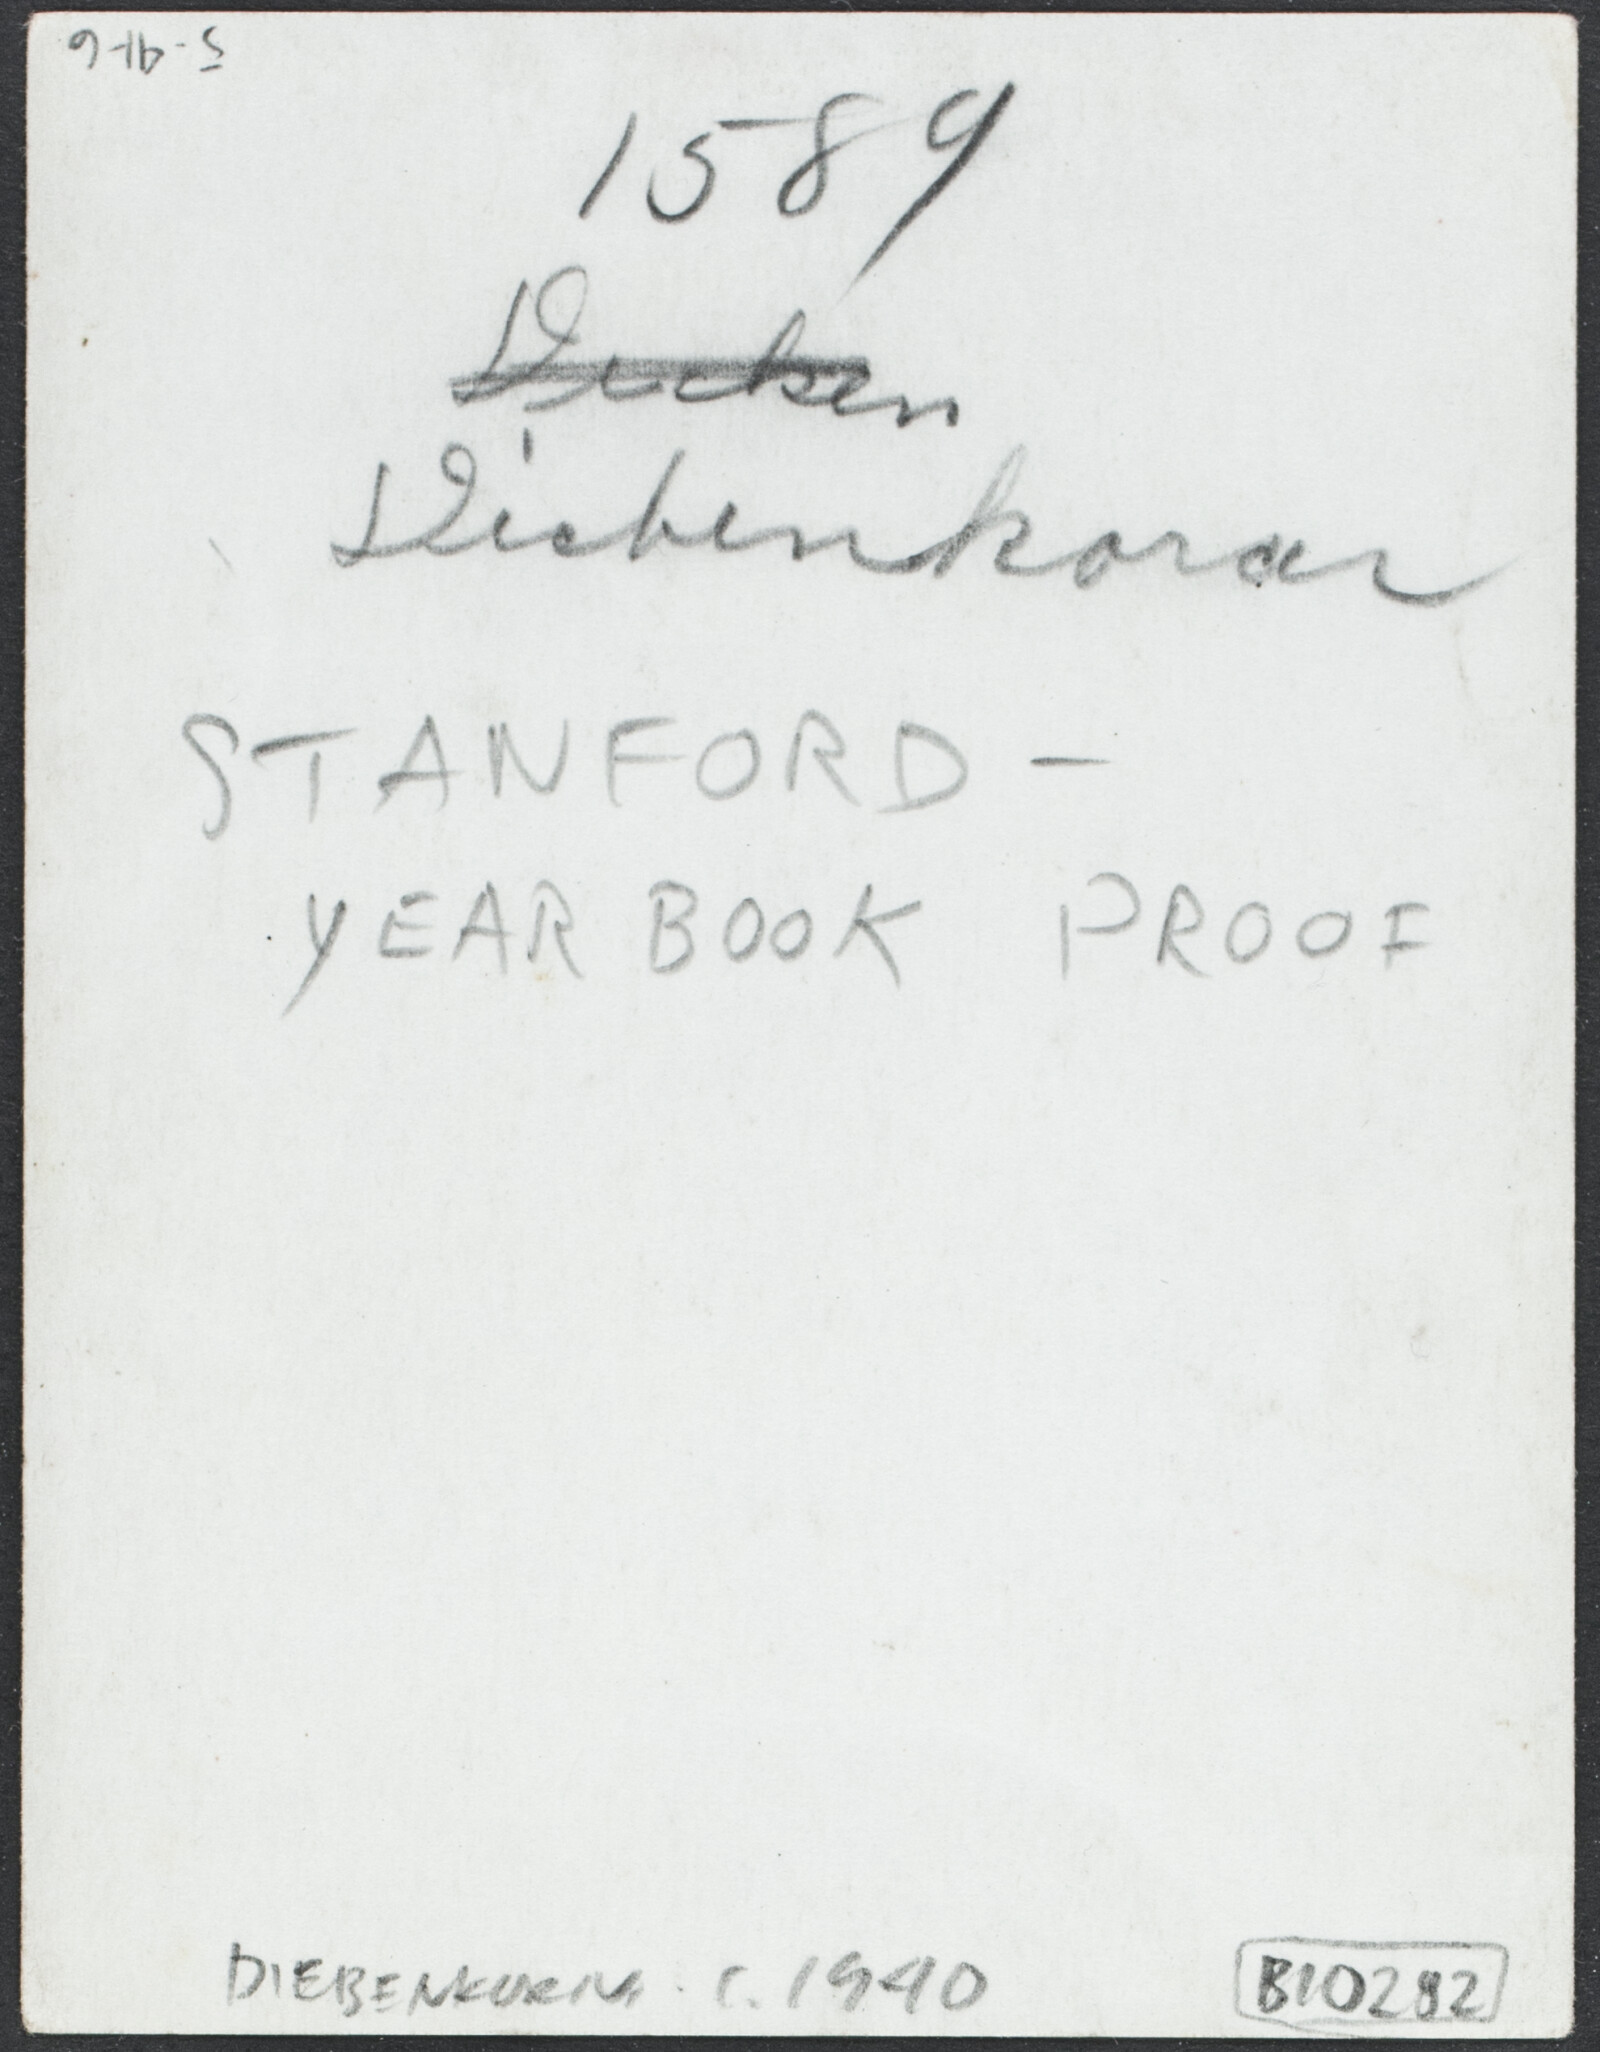 1589
Dicken
Diebenkoran
STANFORD -
YEAR BOOK PROOF
DIEBENKORN. c. 1940